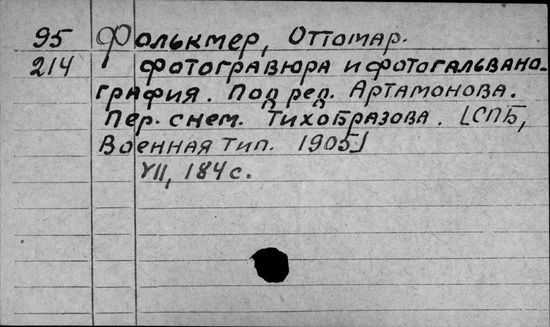 95 Фолькмер, Оттомар.
214 Фотогравюра и фотогальвано-
графия. Под ред. Артамонова.
Пер. с нем. Тихобразова. [СПБ,
Военная тип. 1905]
VII, 184 с.